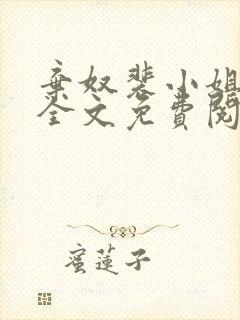 棄奴裴小姐
全文免費閱
蜜蓮子